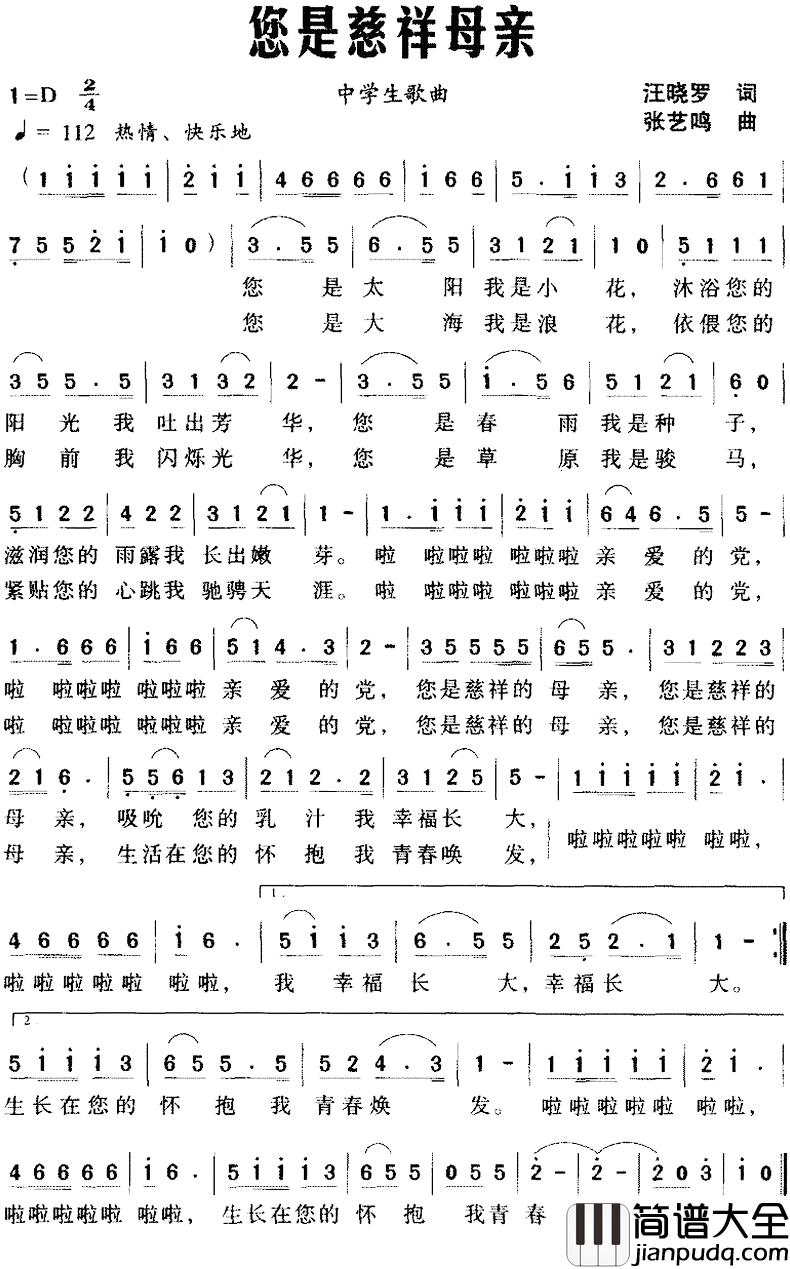 您是慈祥母亲
1=D 2/4 中学生歌曲 汪晓罗 词
♩= 112 热情、快乐地 张艺鸣 曲
(1 i i i i | 2 i i | 4 6 6 6 6 6 | i 6 6 | 5 . i i 3 | 2 . 6 6 1 |
7 5 5 2 i | i 0 ) | 3 . 5 5 | 6 . 5 5 | 3 1 2 1 | 1 0 | 5 1 1 1 |
您 是 太 阳 我 是 小 花, 沐 浴 您 的
您 是 大 海 我 是 浪 花, 依 偎 您 的
3 5 5 . 5 | 3 1 3 2 | 2 - | 3 . 5 5 | i . 5 6 | 5 1 2 1 | 6 0 |
阳 光 我 吐 出 芳 华, 您 是 春 雨 我 是 种 子,
胸 前 我 闪 烁 光 华, 您 是 草 原 我 是 骏 马,
5 1 2 2 | 4 2 2 | 3 1 2 1 | 1 - | 1 . i i i | 2 i i | 6 4 6 . 5 | 5 - |
滋润您的 雨露我 长出嫩 芽。啦 啦啦啦 啦啦啦 亲 爱 的 党,
紧贴您的 心跳我 驰骋天 涯。啦 啦啦啦 啦啦啦 亲 爱 的 党,
1 . 6 6 6 | i 6 6 | 5 1 4 . 3 | 2 - | 3 5 5 5 5 | 6 5 5 . | 3 1 2 2 3 |
啦 啦啦啦 啦啦啦 亲 爱 的 党, 您是慈祥的 母 亲, 您是慈祥的
啦 啦啦啦 啦啦啦 亲 爱 的 党, 您是慈祥的 母 亲, 您是慈祥的
2 1 6 . | 5 5 6 1 3 | 2 1 2 . 2 | 3 1 2 5 | 5 - | 1 i i i i | 2 i . |
母 亲, 吸吮 您的 乳 汁 我 幸福长 大,
啦啦啦啦啦 啦啦,
母 亲, 生活在您的 怀 抱 我 青春唤 发,
1.
4 6 6 6 6 | i 6 . | 5 i i 3 | 6 . 5 5 | 2 5 2 . 1 | 1 - :|
啦啦啦啦啦 啦啦, 我 幸福 长 大, 幸福长 大。
2.
5 i i i 3 | 6 5 5 . 5 | 5 2 4 . 3 | 1 - | 1 i i i i | 2 i . |
生长在您的 怀 抱 我 青春焕 发。 啦啦啦啦啦 啦啦,
4 6 6 6 6 | i 6 . | 5 i i i 3 | 6 5 5 | 0 5 5 | 2 - | 2 - | 2 0 3 | i 0 |
啦啦啦啦啦 啦啦, 生长在您的 怀 抱 我青 春
简谱大全
jianpudq.com